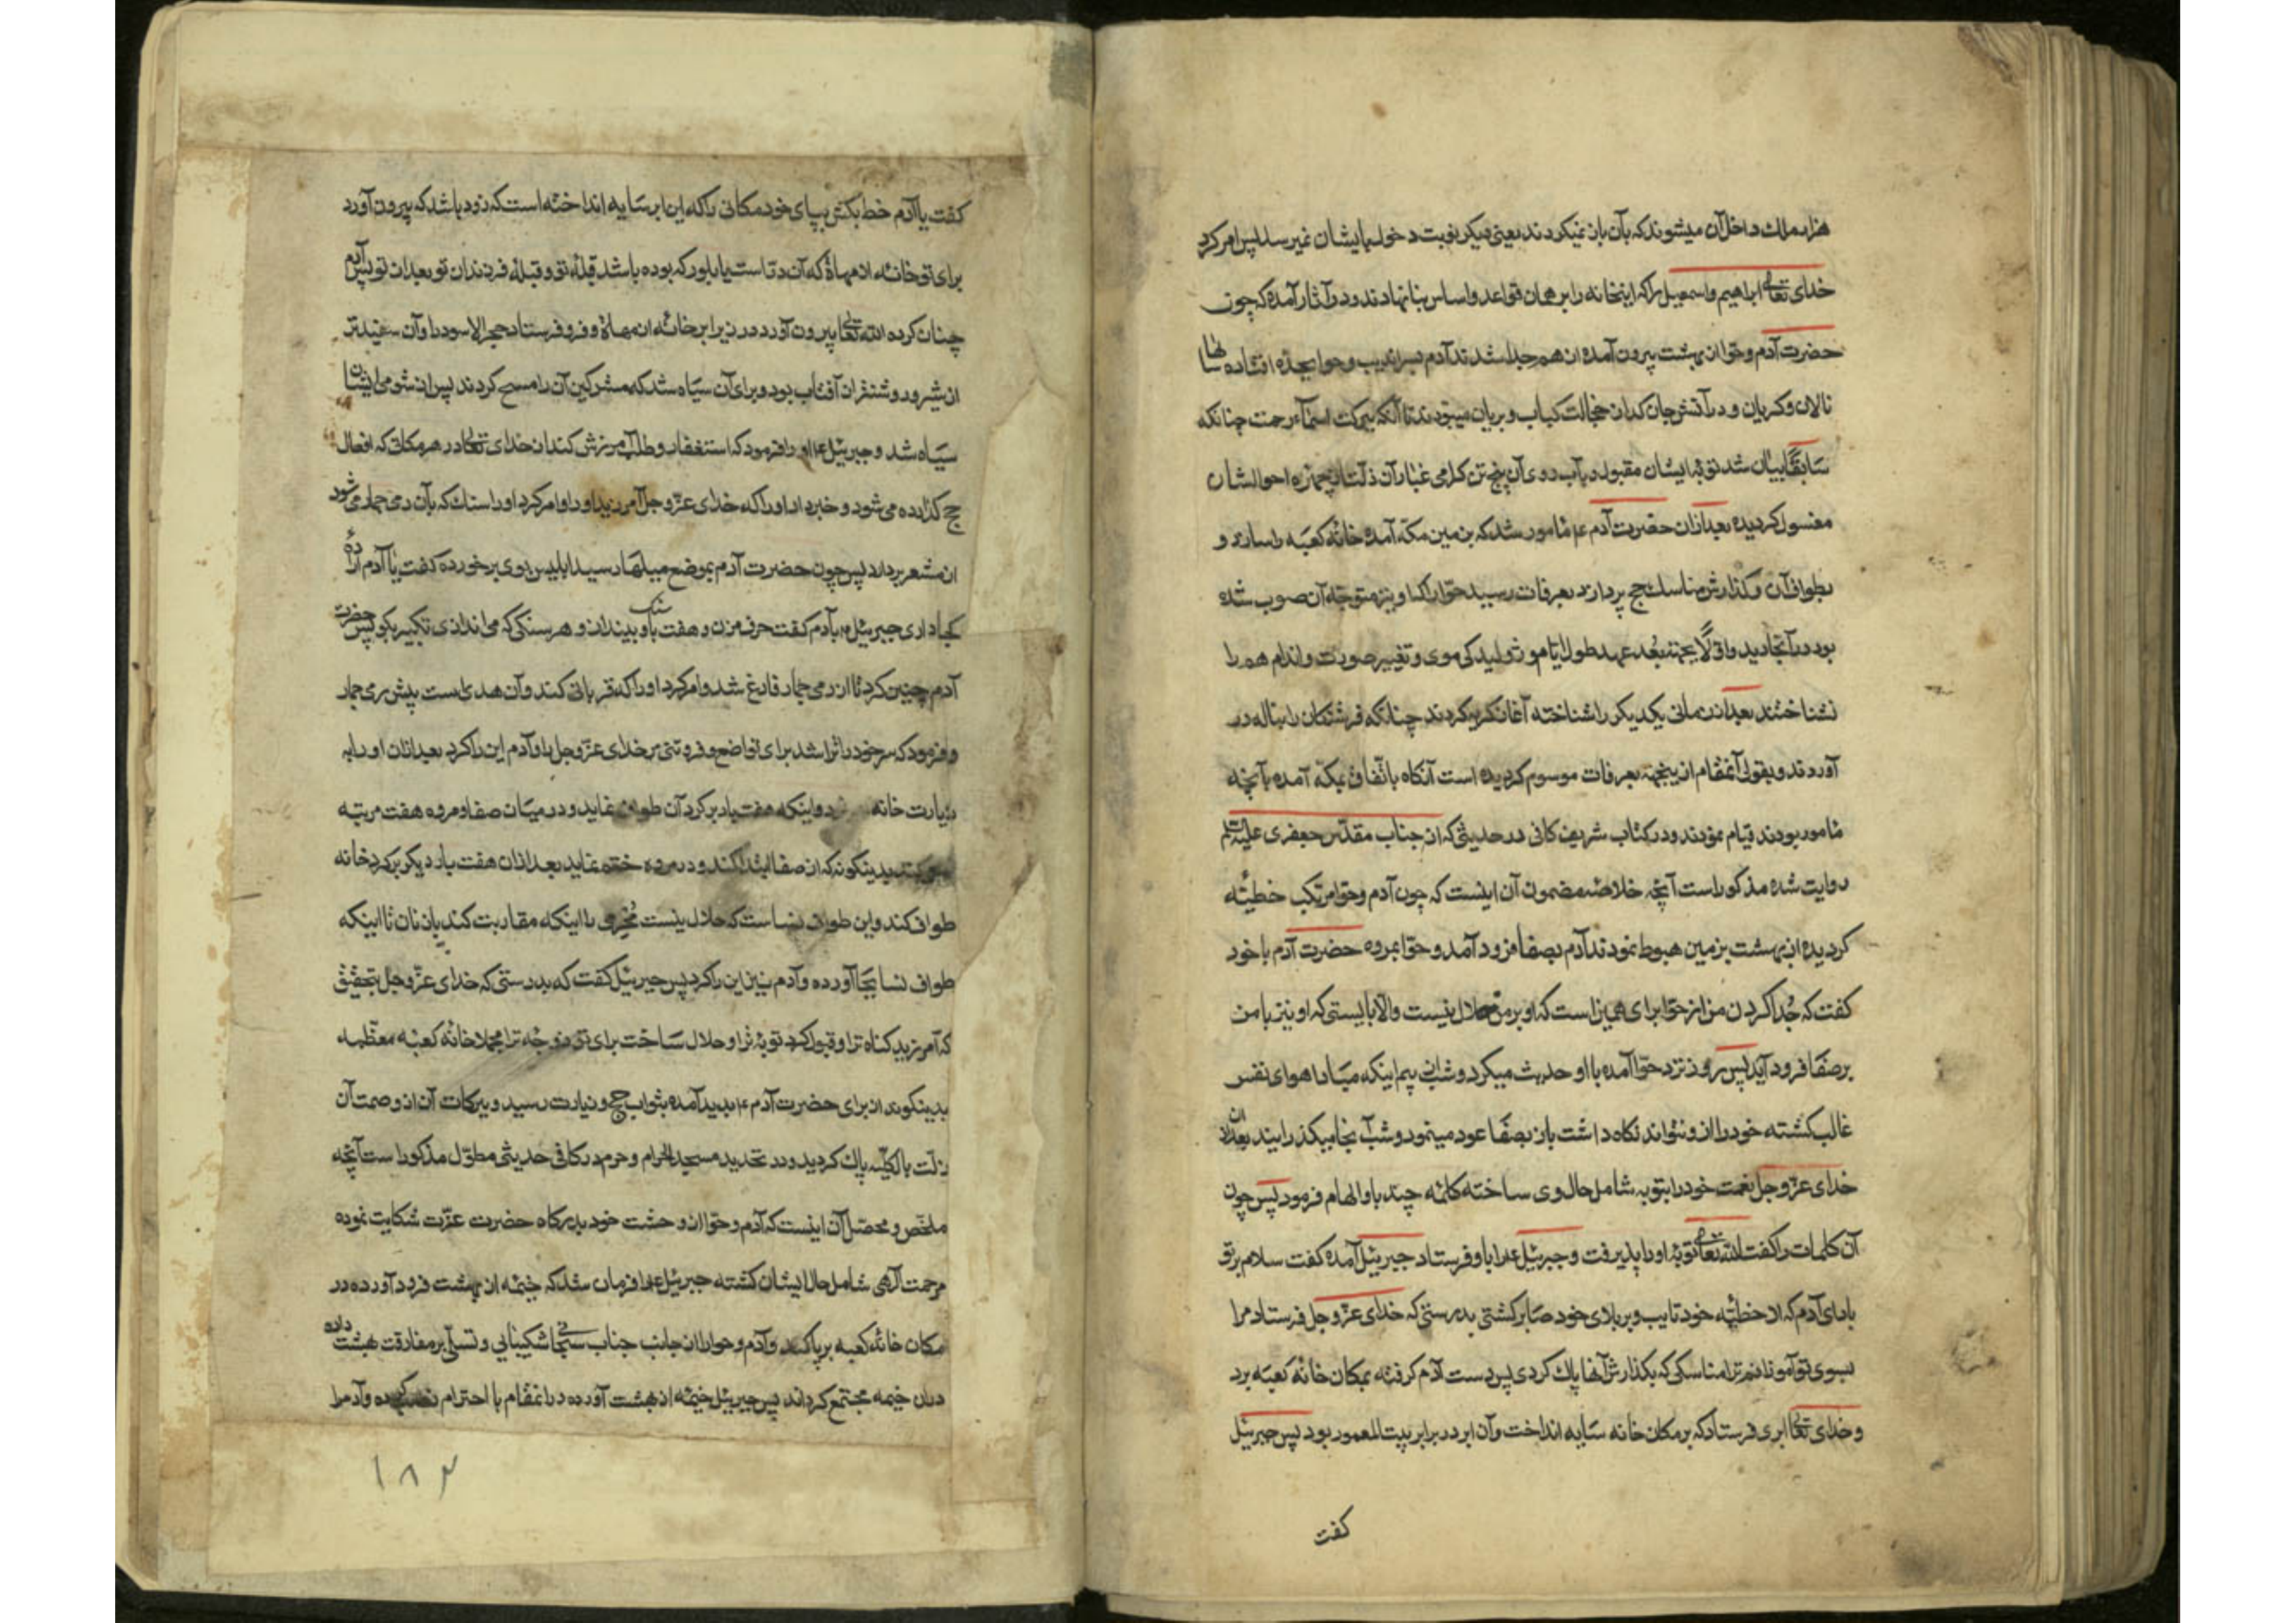 هزار ملك داخل آن میشوند كه بآن باز نمیكردند یعنی دیكر نوبت دخول بایشان نمیرسد پس امر كرد
خدای تعالی ابراهیم و اسمعیل را كه اینخانه را بر همان قواعد و اساس بنا نهادند و در آثار آمده كه چون
حضرت آدم و حوا از بهشت بیرون آمده از هم جدا شدند آدم بسراندیب و حوا بجده افتاده سالها
نالان و كریان و در آتش جان كداز خجالت كباب و بریان میبودند تا آنكه ببركت اسماء رحمت چنانكه
سابقًا بیان شد توبه ایشان مقبول و بآب روی آن پنج تن كرامی غبار آن ذلت از چهره احوالشان
مغسول كردیده بعد ازان حضرت آدم ع مامور شد كه بزمین مكه آمده خانه كعبه را سازد و
بطواف آن و كذارش مناسك حج پردازد بعرفات رسید حوا را كه او نیز متوجه آن صوب شده
بود در آنجا دید و اوّلًا بجهة بُعد عهد و طول ایام و ژولیدكی موی و تغییر صورت و اندام هم را
نشناختند بعد از زمانی یكدیكر را شناخته آغاز كریه كردند چنانكه فرشتكان را بناله در
آوردند و بقولی آنمقام ازینجهة بعرفات موسوم كردیده است آنكاه باتفاق بمكه آمده بآنچه
مامور بودند قیام نمودند و در كتاب شریف كافی در حدیثی كه از جناب مقدّس جعفری علیه السلام
روایت شده مذكور است آنچه خلاصه مضمون آن اینست كه چون آدم و حوا مرتكب خطیئه
كردیده از بهشت بزمین هبوط نمودند آدم بصفا فرود آمد و حوا بمروه حضرت آدم با خود
كفت كه جُدا كردن من از حوا برای همین است كه او بر من حلال نیست والا بایستی كه او نیز با من
بر صفا فرود آید پس روز نزد حوا آمده با او حدیث میكرد و شب از بیم اینكه مبادا هوای نفس
غالب كشته خود را از و نتواند نكاه داشت باز بصفا عود مینمود و شب آنجا میكذرانید بعد ازان
خدای عزّ و جل نعمت خود را بتوبه شامل حال وی ساخته كلمه چند باو الهام فرمود پس چون
آن كلمات را كفت الله تعالی توبه او را پذیرفت و جبرئیل ع را باو فرستاد جبرئیل آمده كفت سلام بر تو
باد ای آدم كه از خطیئه خود تایب و بر بلای خود صابر كشتی بدرستی كه خدای عزّ و جل فرستاد مرا
بسوی تو آموزانم ترا مناسكی كه بكذارش آنها پاك كردی پس دست آدم كرفته بمكان خانه كعبه برد
و خدای تعالی ابری فرستاد كه بر مكان خانه سایه انداخت و آن ابر در برابر بیت المعمور بود پس جبرئیل
كفت
كفت یا آدم خط بكش بپای خود مكانی را كه این ابر سایه انداخته است كه زود باشد كه بیرون آورد
برای تو خانه از مهاة كه آن دتا است یا بلور كه بوده باشد قبله تو و قبله فرزندان تو بعد از تو پس آدم
چنان كرده الله تعالی بیرون آورد در زیر ابر خانه از مهاة و فرو فرستاد حجر الاسود را و آن سفیدتر
از شیر و روشنتر از آفتاب بود و برای آن سیاه شد كه مشركین آن را مسح كردند پس از شومی ایشان
سیاه شد و جبرئیل ع او را فرمود كه استغفار و طلب آمرزش كند از خدای تعالی در هر مكانی كه افعال
حج كذارده می شود و خبر داد او را كه خدای عزّ و جل آمرزید او را و امر كرد او را سنك كه بآن رمی جمار می شود
از مشعر بردارد پس چون حضرت آدم بموضع میلها رسید ابلیس بوی برخورده كفت یا آدم اراده
كجا داری جبرئیل ع بآدم كفت حرف مزن و هفت سنك باو بینداز و هر سنكی كه می اندازی تكبیر بكو پس حضرت
آدم چنین كرد تا از رمی جمار فارغ شد و امر كرد او را كه قربانی كند و آن هدی است پیش رمی جمار
و فرمود كه سر خود را تراشد برای تواضع و فروتنی مر خدای عزّ و جل را و آدم این را كرد بعد ازان او را به
زیارت خانه و اینكه هفت بار بر كرد آن طواف نماید و در میان صفا و مروه هفت مرتبه
بدینكونه كه از صفا ابتدا كند و در مروه ختم نماید بعد ازان هفت بار دیكر بر كرد خانه
طواف كند و این طواف نسا است كه حلال نیست مُحرِمی را اینكه مقاربت كند بازنان تا اینكه
طواف نسا بجا آورده و آدم نیز این را كرد پس جبرئیل كفت كه بدرستی كه خدای عزّ و جل بتحقیق
كه آمرزید كناه ترا و قبول كرد توبه ترا و حلال ساخت برای تو زوجه ترا مجملا خانه كعبه معظمه
بدینكونه از برای حضرت آدم ع پدید آمده بثواب حج و زیارت رسید و ببركات آن از وصمت آن
زلّت بالكلیّه پاك كردید و در تحدید مسجد الحرام و حرم در كافی حدیثی مطوّل مذكور است آنچه
ملخّص و محصّل آن اینست كه آدم و حوا از وحشت خود بدركاه حضرت عزّت شكایت نموده
مرحمت الهی شامل حال ایشان كشته جبرئیل ع را فرمان شد كه خیمه از بهشت فرود آورده در
مكان خانه كعبه برپا كند و آدم و حوا را از جانب جناب سبحانی شكیبایی و تسلّی بر مفارقت بهشت داده
دران خیمه مجتمع كرداند پس جبرئیل خیمه از بهشت آورده درانمقام با احترام نصب كرده و آدم را
۱۸۳